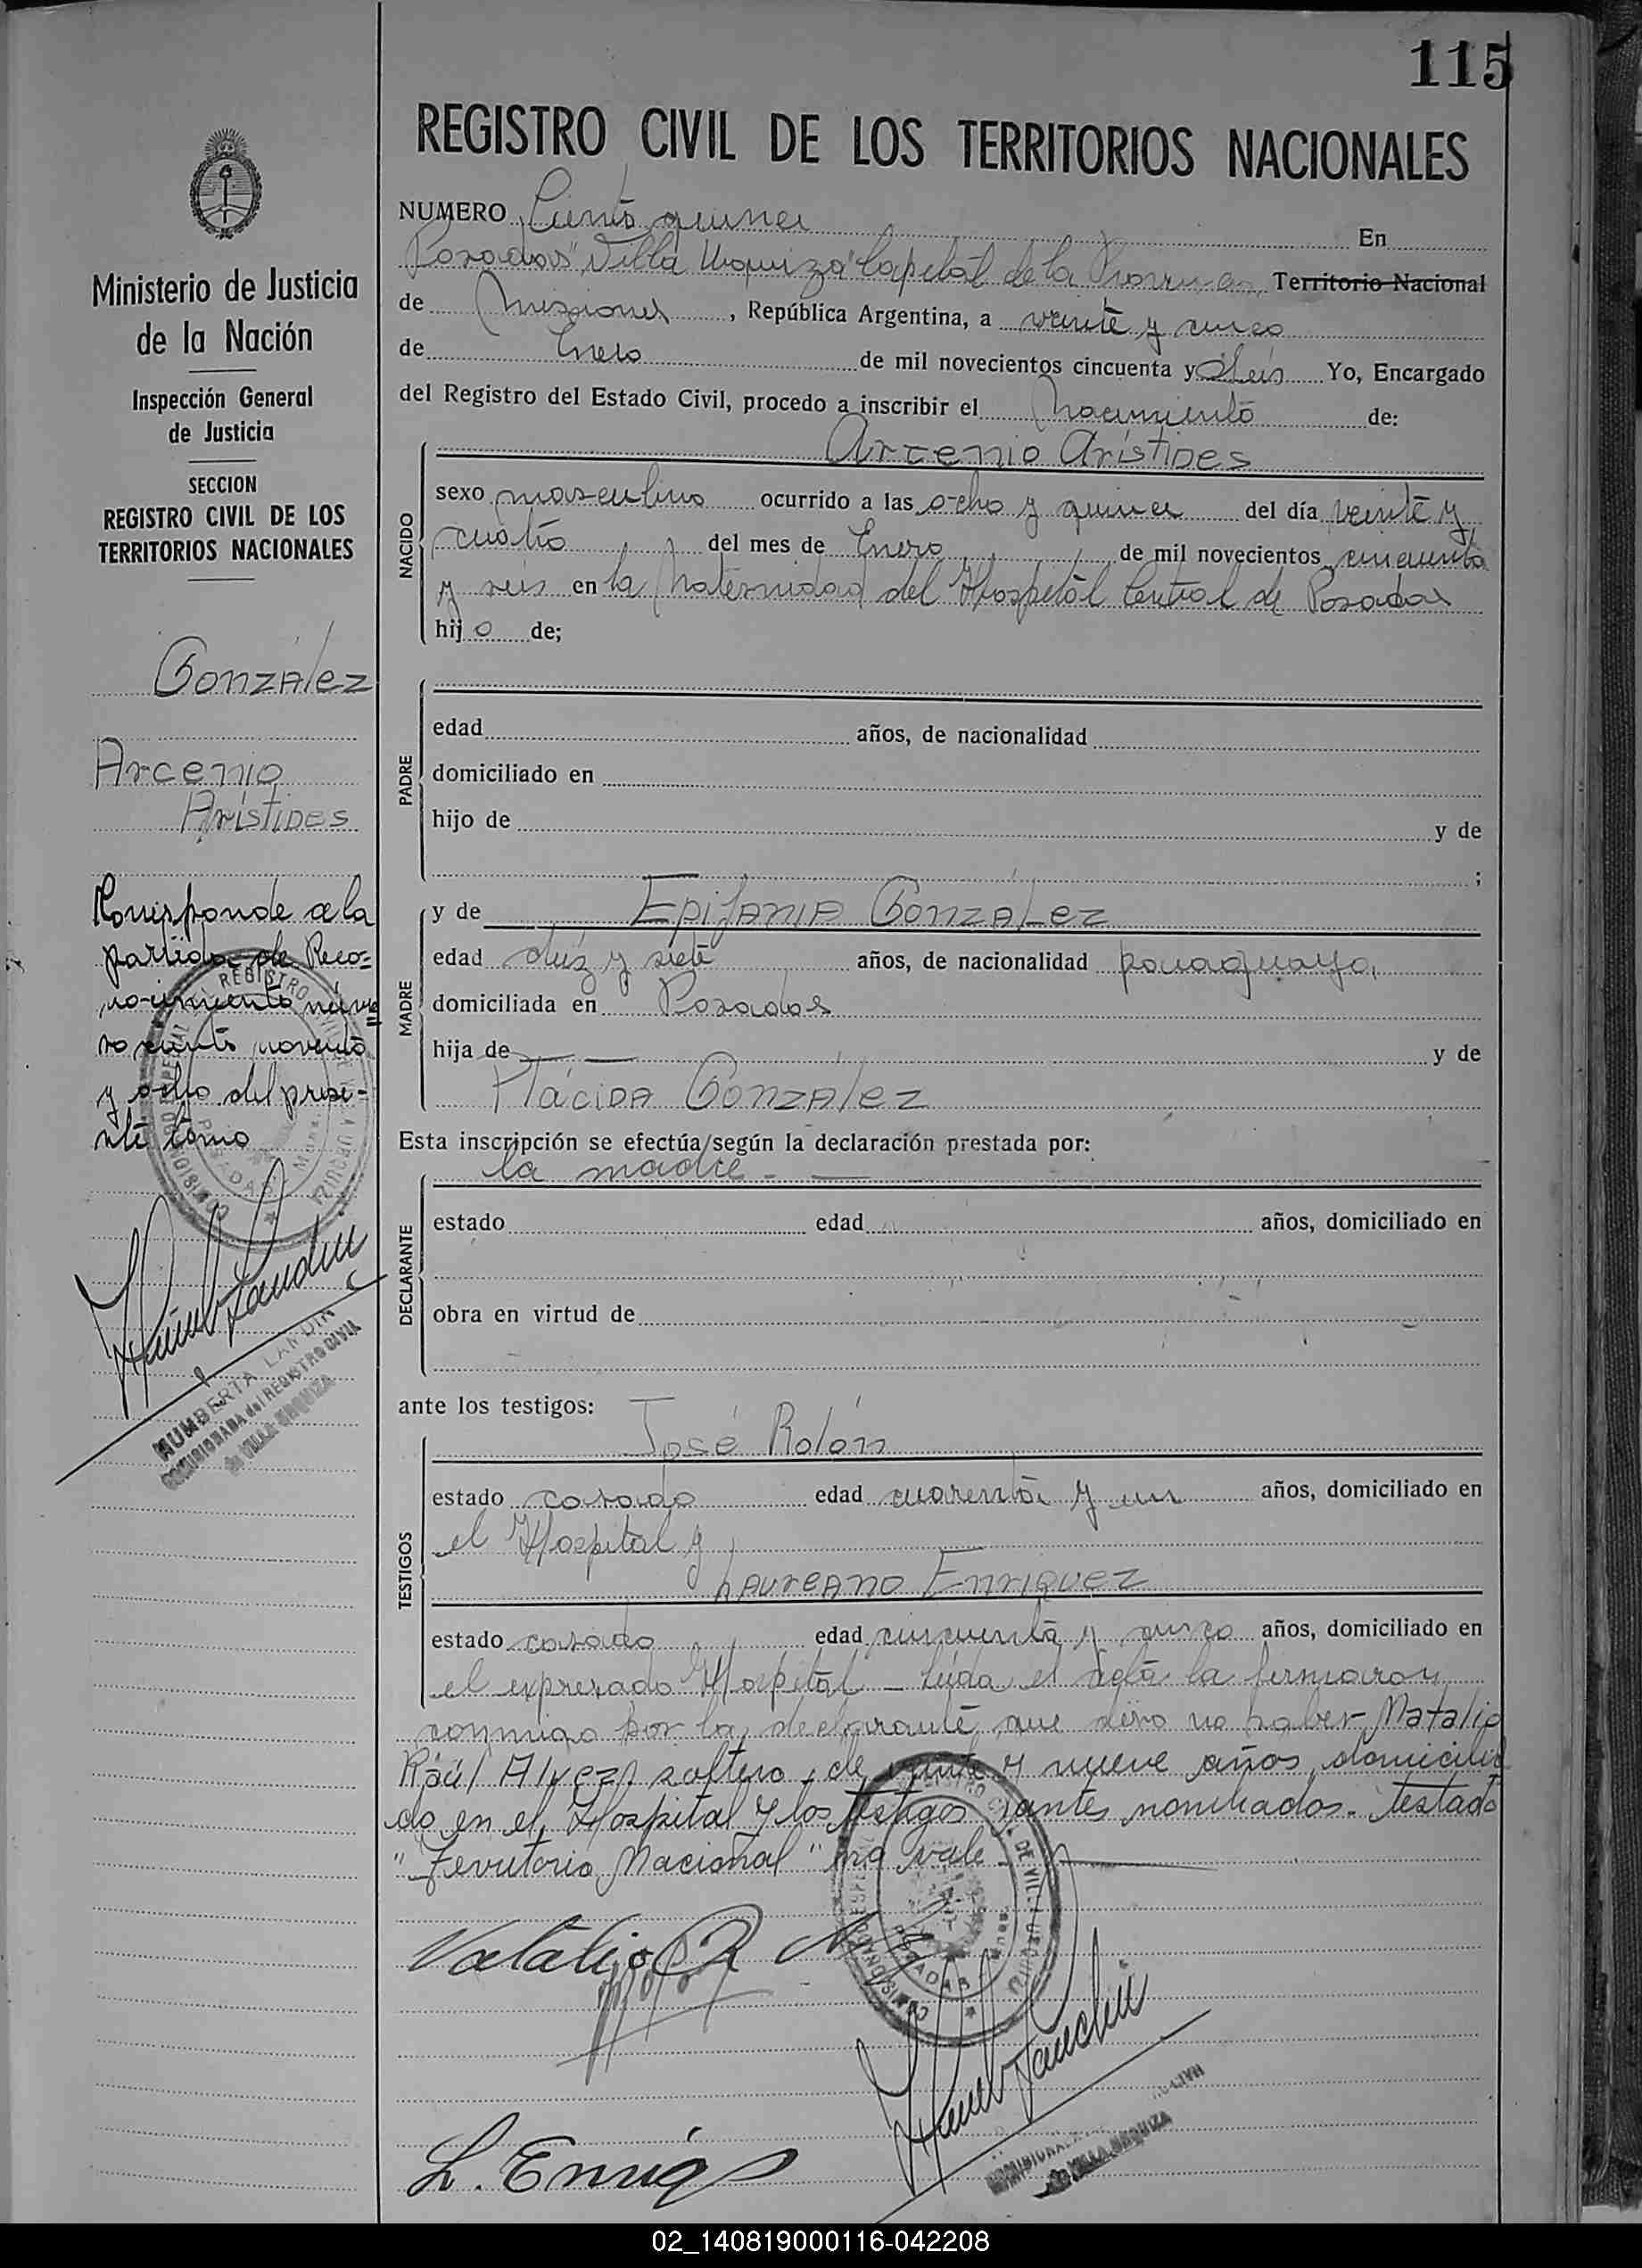 115
REGISTRO CIVIL DE LOS TERRITORIOS NACIONALES
NUMERO Ciento quince En
Posadas "Villa Urquiza" Capital de la Provincia Territorio Nacional
de Misiones, República Argentina, a veinte y cinco
de Enero de mil novecientos cincuenta y seis Yo, Encargado
del Registro del Estado Civil, procedo a inscribir el Nacimiento de:
Arcenio Arístides
NACIDO
sexo masculino ocurrido a las ocho y quince del día veinte y
cuatro del mes de Enero de mil novecientos cincuenta
y seis en la Maternidad del Hospital Central de Posadas
hijo de;
PADRE
edad años, de nacionalidad
domiciliado en
hijo de y de
;
MADRE
y de Epifania González
edad diez y siete años, de nacionalidad paraguaya,
domiciliada en Posadas
hija de — — y de
Plácida González
Esta inscripción se efectúa según la declaración prestada por:
la madre - —
DECLARANTE
estado edad años, domiciliado en
obra en virtud de
ante los testigos:
TESTIGOS
José Rolón
estado casado edad cuarenta y un años, domiciliado en
el Hospital y
Laureano Enriquez
estado casado edad cincuenta y cinco años, domiciliado en
el expresado Hospital - Leída el acta la firmaron
conmigo por la declarante que dijo no saber Natalio
Raúl Alvez, soltero, de veinte y nueve años, domicilia
do en el Hospital y los testigos antes nombrados. Testado
"Territorio Nacional" no vale
Natalio R
L. Enriq
Ministerio de Justicia
de la Nación
Inspección General
de Justicia
SECCION
REGISTRO CIVIL DE LOS
TERRITORIOS NACIONALES
González
Arcenio
Arístides
Corresponde a la
partida de Reco=
nocimiento núme
ro ciento noventa
y ocho del prese-
nte tomo
HUMBERTA LANDIN
COMISIONADA del REGISTRO CIVIL
de VILLA URQUIZA
02_140819000116-042208